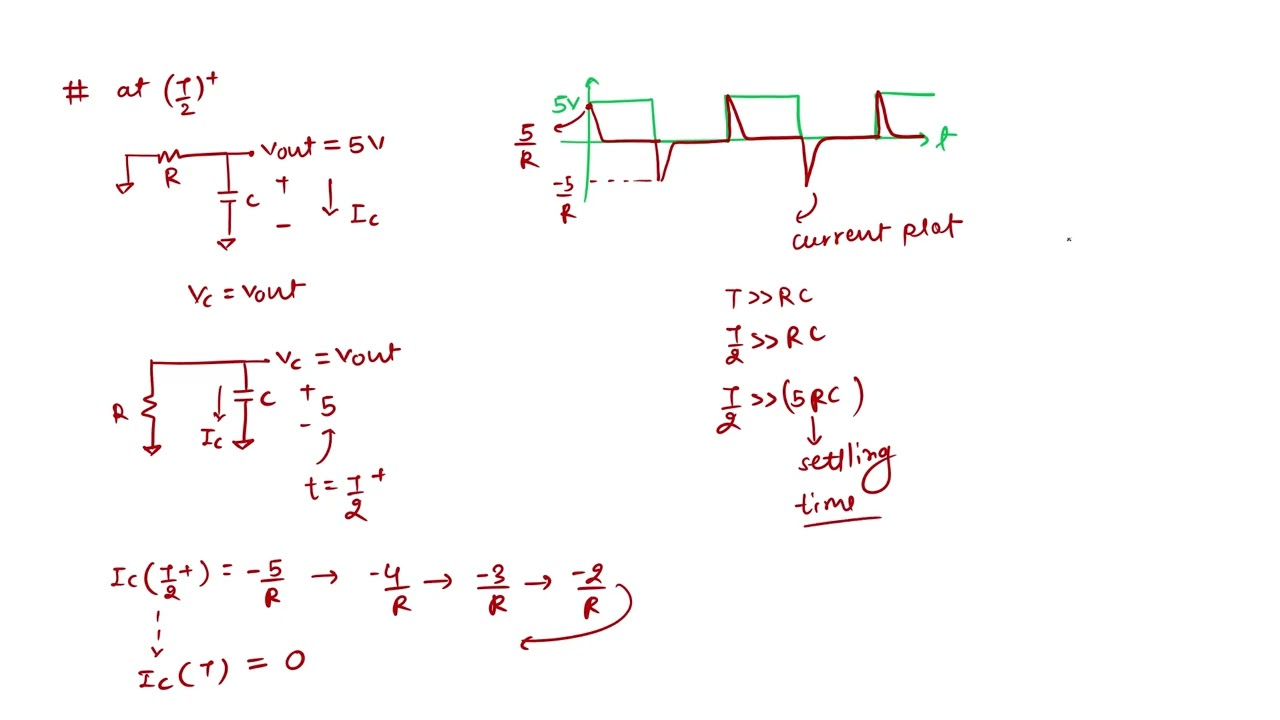 # at (T/2)⁺
Vout = 5V
R
C
+
-
Ic
Vc = Vout
Vc = Vout
R
Ic
C
+
5
-
t = T/2⁺
Ic(T/2⁺) = -5/R → -4/R → -3/R → -2/R
Ic(T) = 0
5V
5/R
-5/R
t
current plot
T >> RC
T/2 >> RC
T/2 >> (5RC)
settling
time